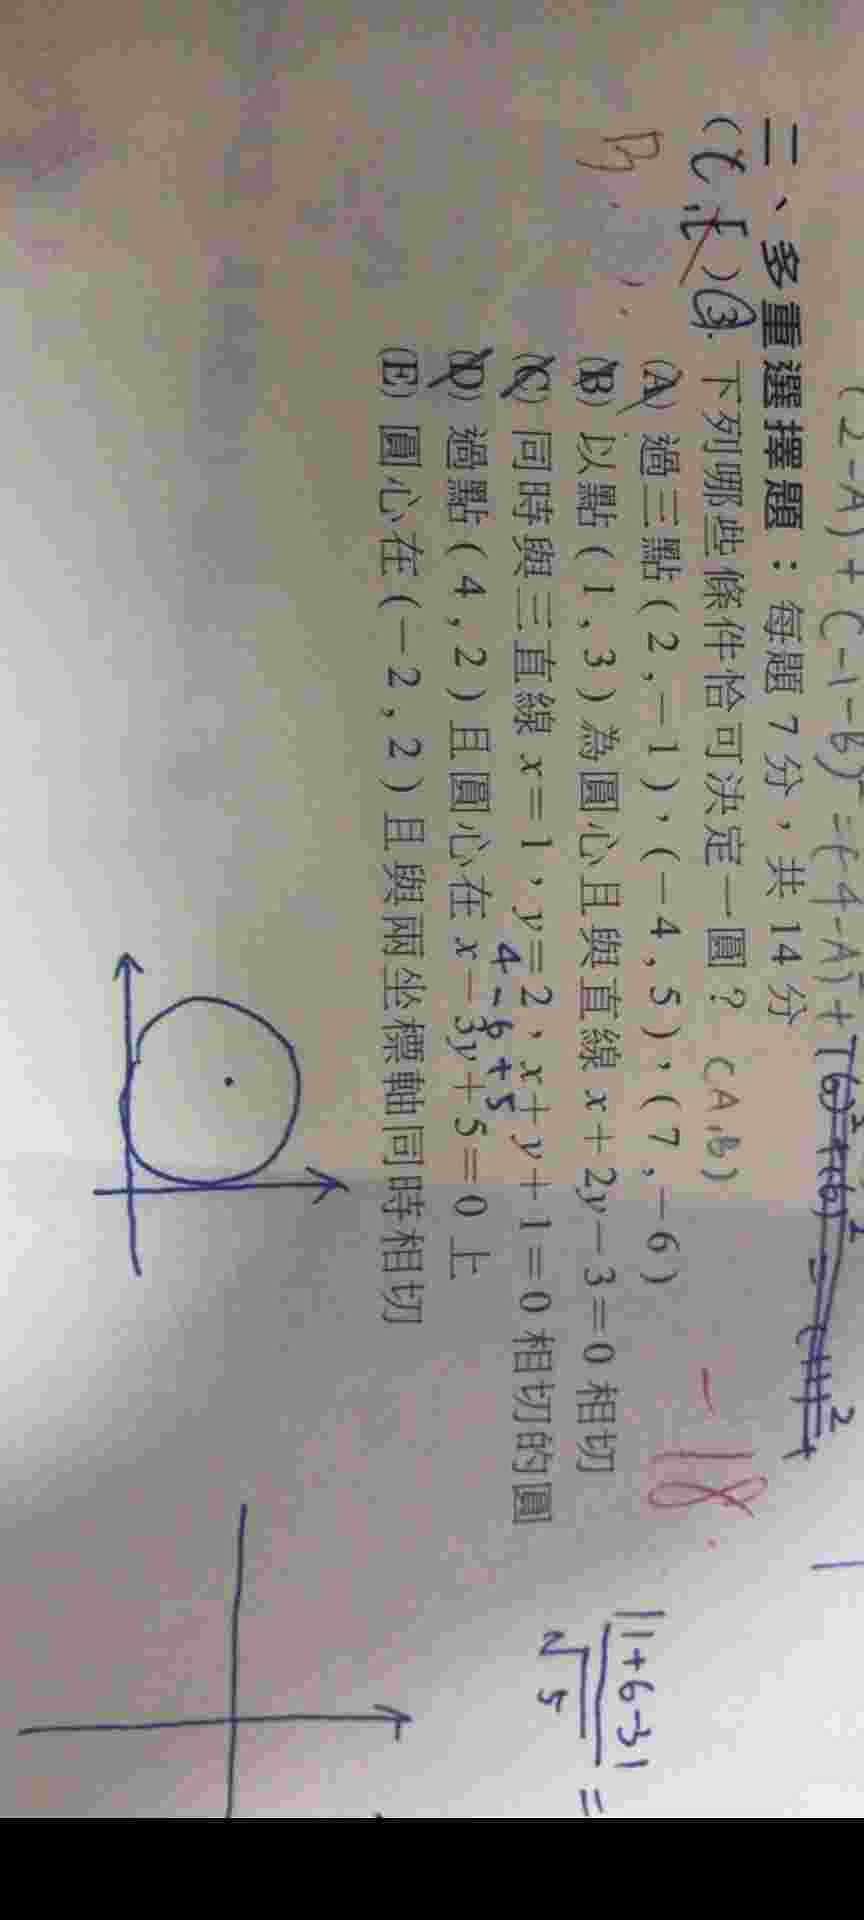 (2-A)+(-1-B)²=(-4-A)²+
二、多重選擇題：每題 7 分，共 14 分
( ) 3. 下列哪些條件恰可決定一圓？ (A,B)
-18.
(A) 過三點(2,-1),(-4,5),(7,-6)
B.
(B) 以點(1,3)為圓心且與直線 x+2y-3=0 相切
(C) 同時與三直線 x=1，y=2，x+y+1=0 相切的圓
4-6+5
(D) 過點(4,2)且圓心在 x-3y+5=0 上
(E) 圓心在(-2,2)且與兩坐標軸同時相切
|1+6-3|
√5 =